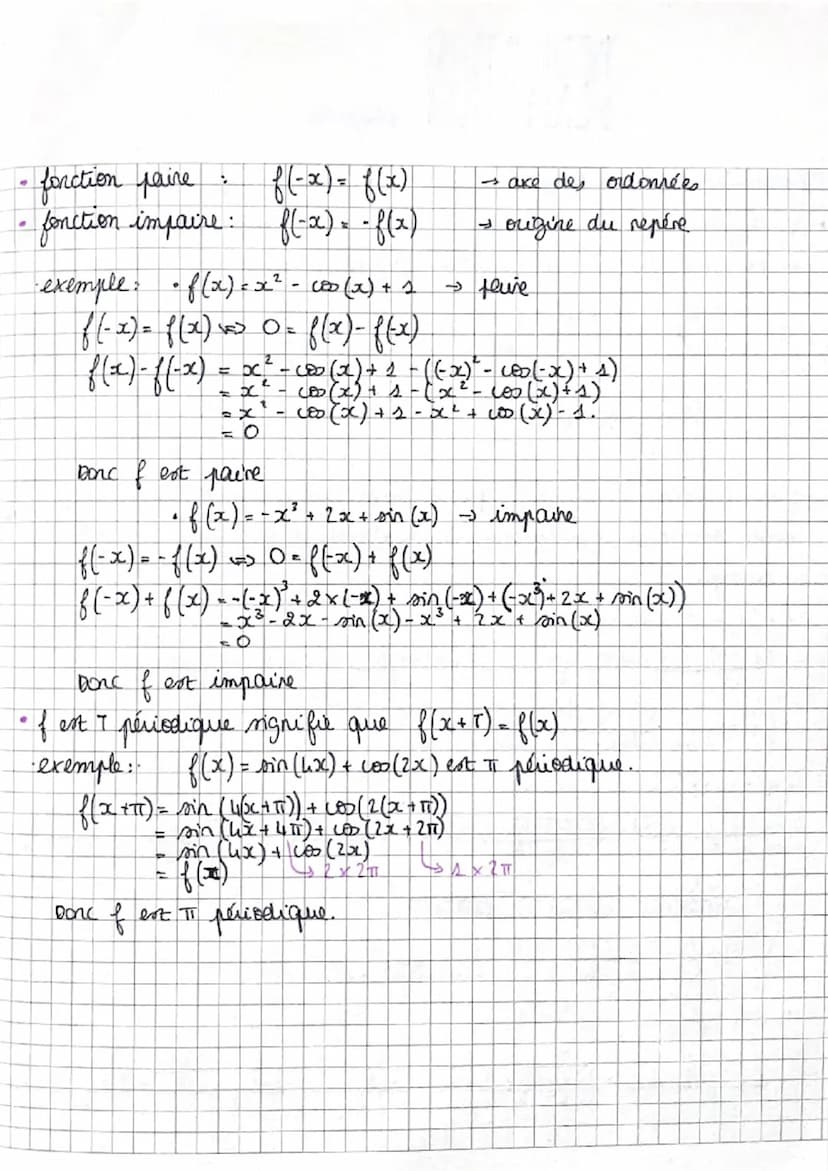 • fonction paire : f(-x) = f(x) → axe des ordonnées
• fonction impaire : f(-x) = -f(x) → origine du repére
exemple : • f(x) = x² - cos(x) + 1 → paire
f(-x) = f(x) ⇔ 0 = f(x) - f(-x)
f(x) - f(-x) = x² - cos(x) + 1 - ((-x)² - cos(-x) + 1)
= x² - cos(x) + 1 - (x² - cos(x) + 1)
= x² - cos(x) + 1 - x² + cos(x) - 1.
= 0
Donc f est paire
• f(x) = -x³ + 2x + sin(x) → impaire
f(-x) = -f(x) ⇔ 0 = f(-x) + f(x)
f(-x) + f(x) = -(-x)³ + 2×(-x) + sin(-x) + (-x³) + 2x + sin(x))
= x³ - 2x - sin(x) - x³ + 2x + sin(x)
= 0
Donc f est impaire
• f est T périodique signifie que f(x+T) = f(x)
exemple : f(x) = sin(4x) + cos(2x) est π périodique.
f(x+π) = sin(4(x+π)) + cos(2(x+π))
= sin(4x + 4π) + cos(2x + 2π)
= sin(4x) + cos(2x)
= f(x) ↳ 2 × 2π ↳ 1 × 2π
Donc f est π périodique.